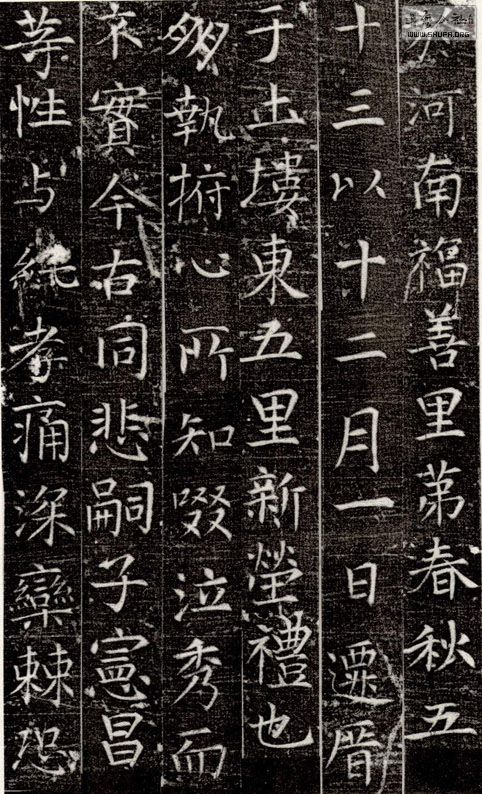 河南福善里第春秋五
十三以十二月一日遷厝
于土塿東五里新塋禮也
執拊心所知啜泣秀而
不實今古同悲嗣子憲昌
等性与純孝痛深欒棘恐
WWW.SHUFA.ORG